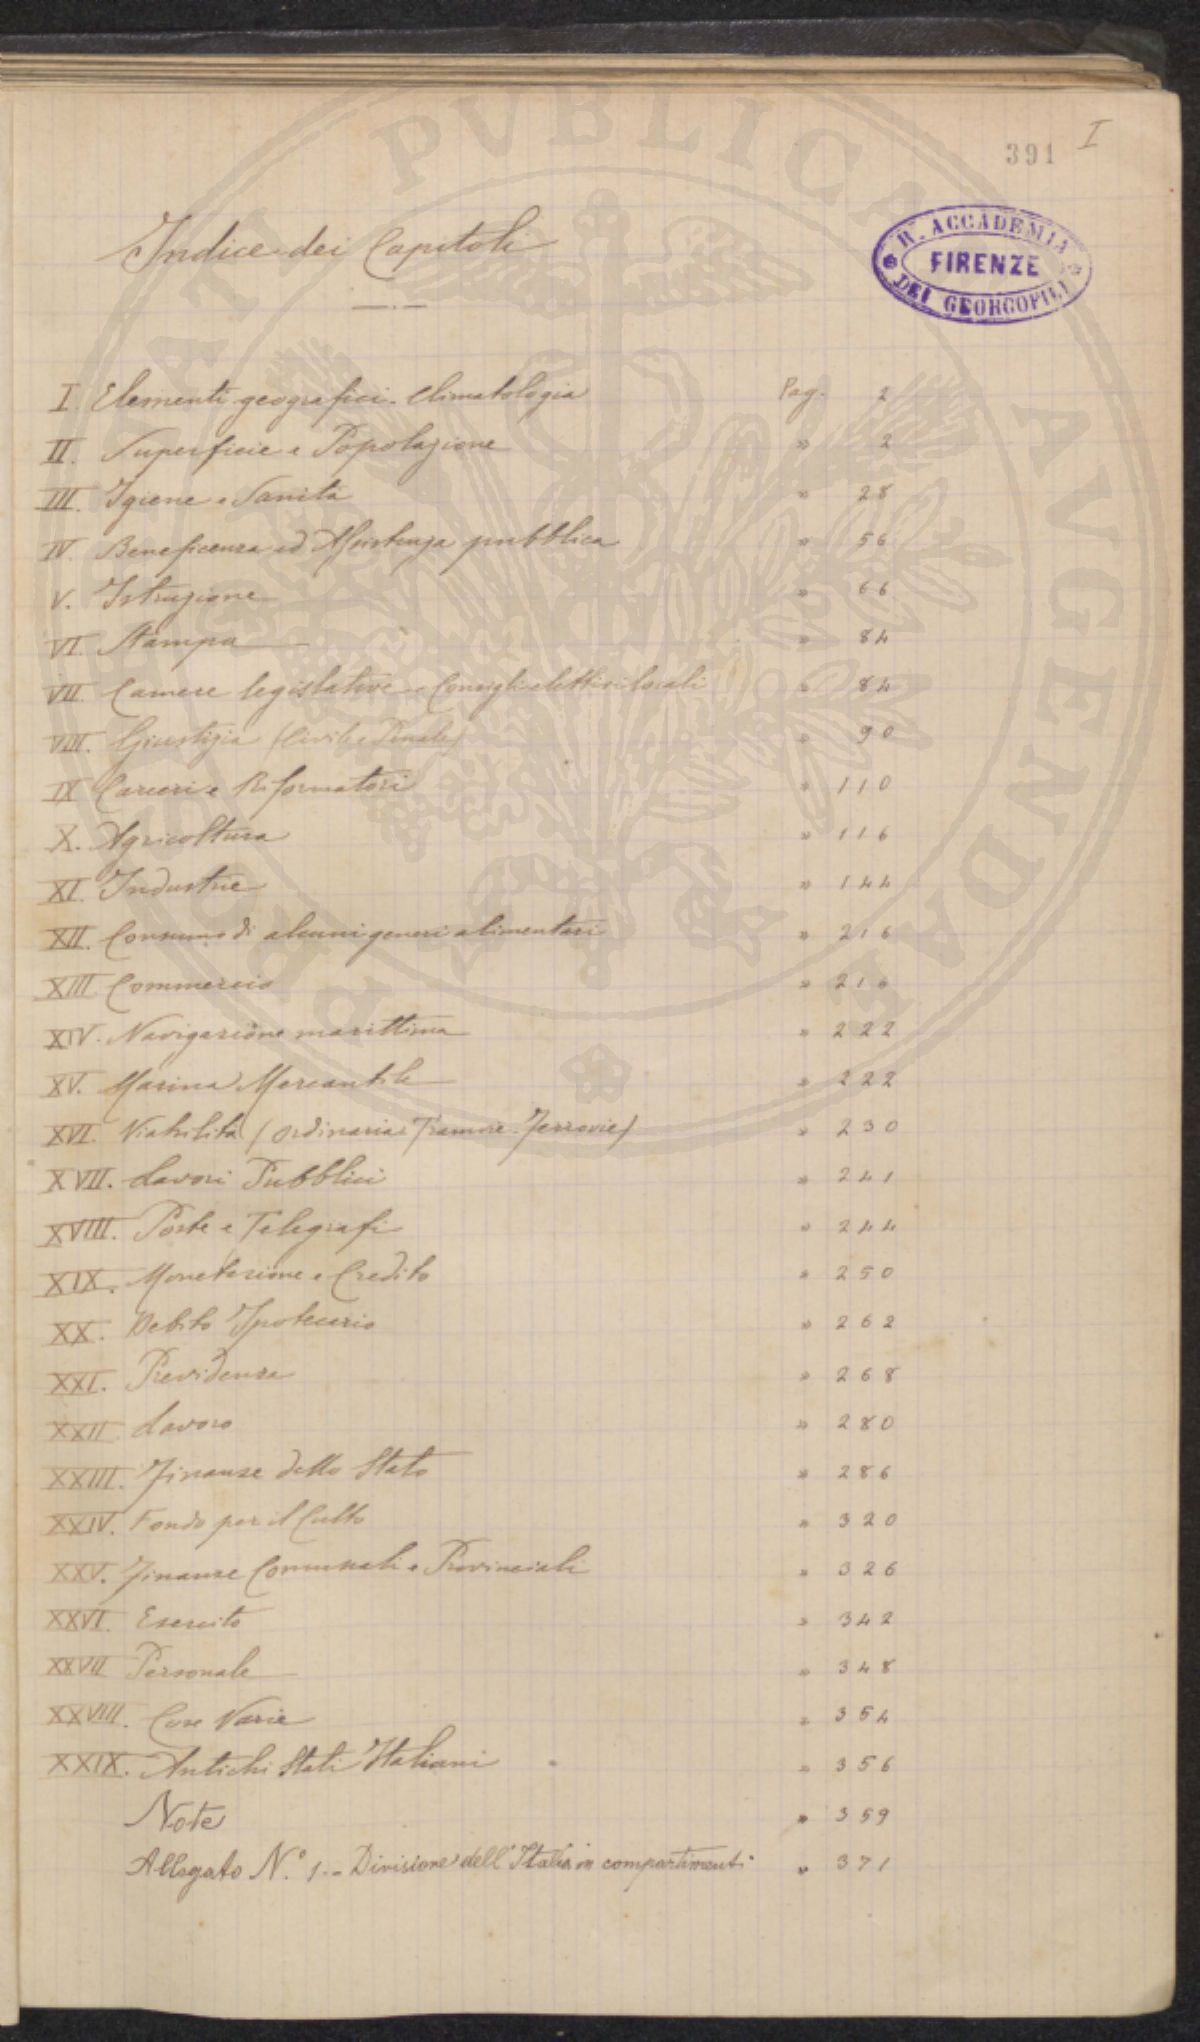 391 I
R. ACCADEMIA
FIRENZE
DEI GEORGOFILI
PROSPERITATI PVBLICAE AVGENDAE
Indice dei Capitoli
I. Elementi geografici. Climatologia Pag. 2
II. Superficie e Popolazione " 2
III. Igiene e Sanità " 28
IV. Beneficenza ed Assistenza pubblica " 56
V. Istruzione " 66
VI. Stampa " 84
VII. Camere legislative e Consigli elettivi locali " 84
VIII. Giustizia (Civile e Penale) " 90
IX Carceri e Riformatori " 110
X. Agricoltura " 116
XI. Industrie " 144
XII. Consumo di alcuni generi alimentari " 216
XIII Commercio " 216
XIV. Navigazione marittima " 222
XV. Marina Mercantile " 222
XVI. Viabilità (Ordinaria e Tramvie. Ferrovie) " 230
XVII. Lavori Pubblici " 241
XVIII. Poste e Telegrafi " 244
XIX. Monetazione e Credito " 250
XX. Debito Ipotecario " 262
XXI. Previdenza " 268
XXII Lavoro " 280
XXIII. Finanze dello Stato " 286
XXIV. Fondo per il Culto " 320
XXV. Finanze Comunali e Provinciali " 326
XXVI. Esercito " 342
XXVII Personale " 348
XXVIII. Cose Varie " 354
XXIX. Antichi Stati Italiani " 356
Note " 359
Allegato N.° 1. - Divisione dell'Italia in compartimenti " 371